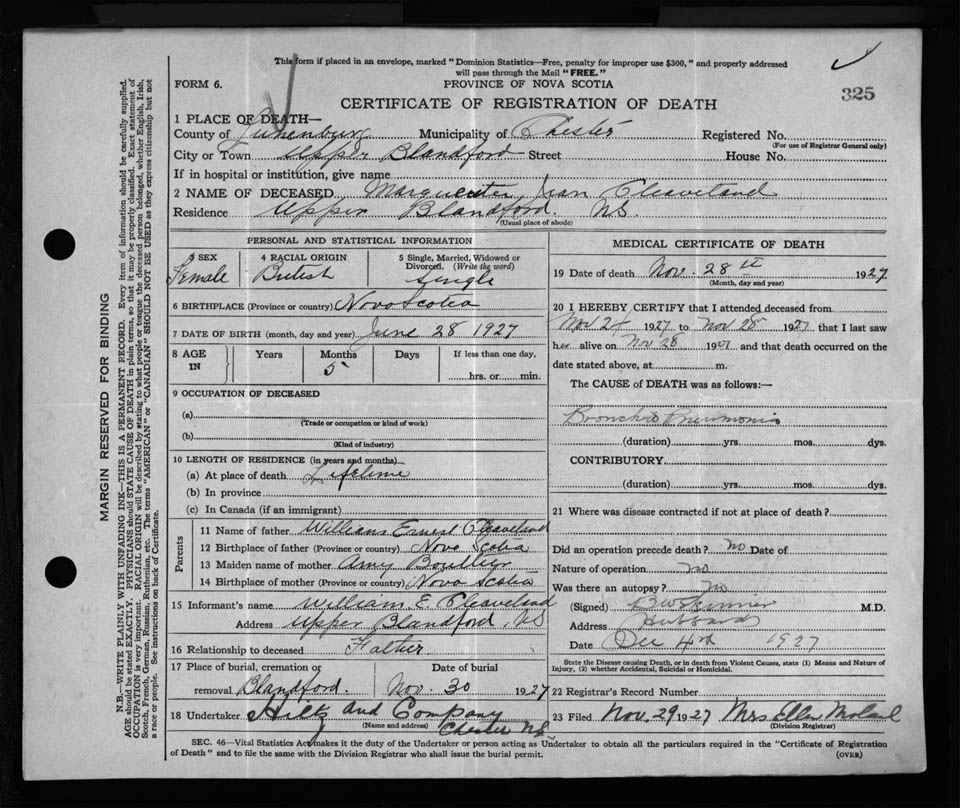 This form if placed in an envelope, marked "Dominion Statistics—Free, penalty for improper use $300," and properly addressed
will pass through the Mail "FREE."
FORM 6.
PROVINCE OF NOVA SCOTIA
325
CERTIFICATE OF REGISTRATION OF DEATH
1 PLACE OF DEATH—
County of Lunenburg Municipality of Chester Registered No.
(For use of Registrar General only)
City or Town Upper Blandford Street House No.
If in hospital or institution, give name
2 NAME OF DECEASED Jean Cleaveland
Residence Upper Blandford. NS.
(Usual place of abode)
PERSONAL AND STATISTICAL INFORMATION
3 SEX Female
4 RACIAL ORIGIN British
5 Single, Married, Widowed or Divorced. (Write the word) Single
6 BIRTHPLACE (Province or country) Nova Scotia
7 DATE OF BIRTH (month, day and year) June 28 1927
8 AGE IN Years Months 5 Days If less than one day, hrs. or min.
9 OCCUPATION OF DECEASED
(a)
(Trade or occupation or kind of work)
(b)
(Kind of industry)
10 LENGTH OF RESIDENCE (in years and months)
(a) At place of death Lifetime
(b) In province
(c) In Canada (if an immigrant)
Parents
11 Name of father William Ernest Cleaveland
12 Birthplace of father (Province or country) Nova Scotia
13 Maiden name of mother Amy
14 Birthplace of mother (Province or country) Nova Scotia
15 Informant's name William E. Cleaveland
Address Upper Blandford, NS
16 Relationship to deceased Father
17 Place of burial, cremation or removal Blandford. Date of burial Nov. 30 1927
18 Undertaker Hiltz and Company
(Name and address) Chester NS
MEDICAL CERTIFICATE OF DEATH
19 Date of death Nov. 28th 1927
(Month, day and year)
20 I HEREBY CERTIFY that I attended deceased from
Nov 1927 to Nov 28 1927, that I last saw
her alive on Nov 28 1927 and that death occurred on the
date stated above, at m.
The CAUSE of DEATH was as follows:—
Broncho Pneumonia
(duration) yrs. mos. dys.
CONTRIBUTORY
(duration) yrs. mos. dys.
21 Where was disease contracted if not at place of death?
Did an operation precede death? no Date of
Nature of operation no
Was there an autopsy? no
(Signed) Skinner M.D.
Address Hubbards
Date Dec 1927
State the Disease causing Death, or in death from Violent Causes, state (1) Means and Nature of
Injury, (2) whether Accidental, Suicidal or Homicidal.
22 Registrar's Record Number
23 Filed Nov. 29 1927 Mrs Ella
(Division Registrar)
SEC. 46—Vital Statistics Act makes it the duty of the Undertaker or person acting as Undertaker to obtain all the particulars required in the "Certificate of Registration
of Death" and to file the same with the Division Registrar who shall issue the burial permit.
(OVER)
MARGIN RESERVED FOR BINDING
N.B.—WRITE PLAINLY WITH UNFADING INK—THIS IS A PERMANENT RECORD. Every item of information should be carefully supplied.
AGE should be stated EXACTLY. PHYSICIANS should STATE CAUSE OF DEATH in plain terms, so that it may be properly classified. Exact statement of
OCCUPATION is very important. RACIAL ORIGIN will be described by stating to what people or tongue the deceased person belonged, whether English, Irish,
Scotch, French, German, Russian, Ruthenian, etc. The terms "AMERICAN" or "CANADIAN" SHOULD NOT BE USED as they express citizenship but not
a race or people. See instructions on back of Certificate.